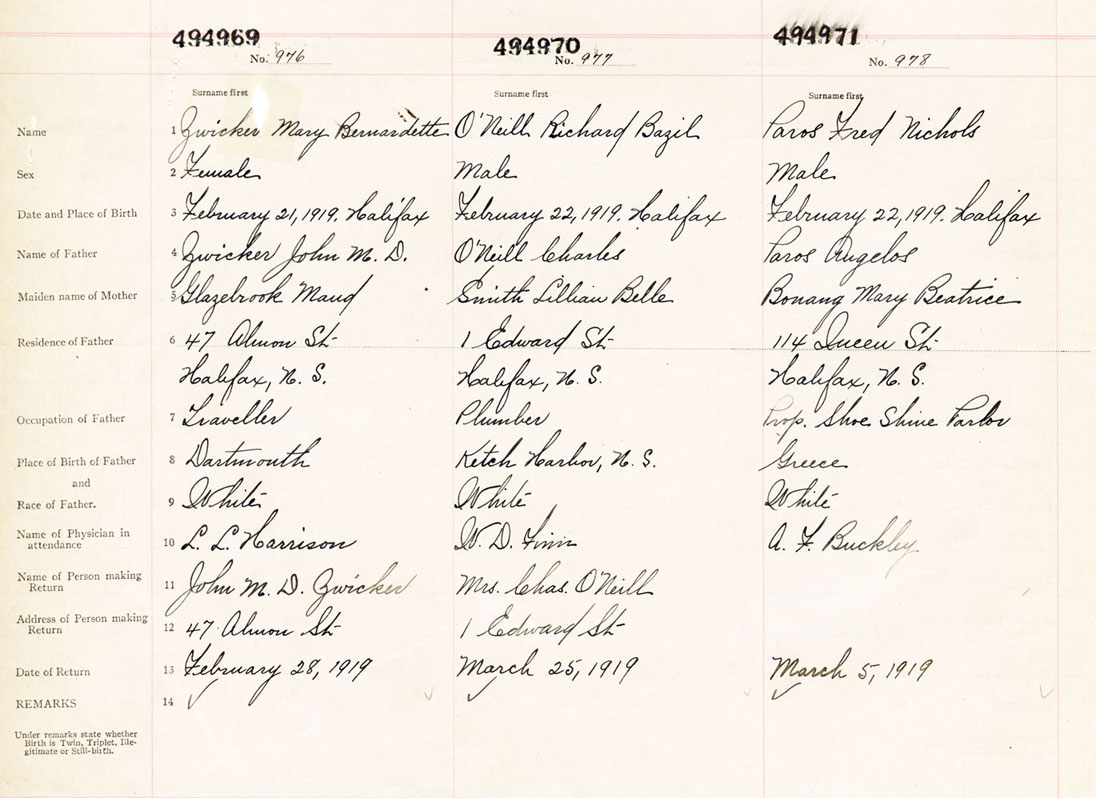 494969 494970 494971
No. 976 No. 977 No. 978
Surname first Surname first Surname first
Name 1 Zwicker Mary Bernardette O'Neill Richard Bazil Paros Fred Nichols
Sex 2 Female Male Male
Date and Place of Birth 3 February 21, 1919. Halifax February 22, 1919. Halifax February 22, 1919. Halifax
Name of Father 4 Zwicker John M. D. O'Neill Charles Paros Angelos
Maiden name of Mother 5 Glazebrook Maud Smith Lillian Belle Bonang Mary Beatrice
Residence of Father 6 47 Almon St 1 Edward St 114 Queen St
Halifax, N. S. Halifax, N. S. Halifax, N. S.
Occupation of Father 7 Traveller Plumber Prop. Shoe Shine Parlor
Place of Birth of Father 8 Dartmouth Ketch Harbor, N. S. Greece
and
Race of Father. 9 White White White
Name of Physician in
attendance 10 L. L. Harrison W. D. Finn A. F. Buckley
Name of Person making
Return 11 John M. D. Zwicker Mrs. Chas. O'Neill
Address of Person making
Return 12 47 Almon St 1 Edward St
Date of Return 13 February 28, 1919 March 25, 1919 March 5, 1919
REMARKS 14
Under remarks state whether
Birth is Twin, Triplet, Ille-
gitimate or Still-birth.